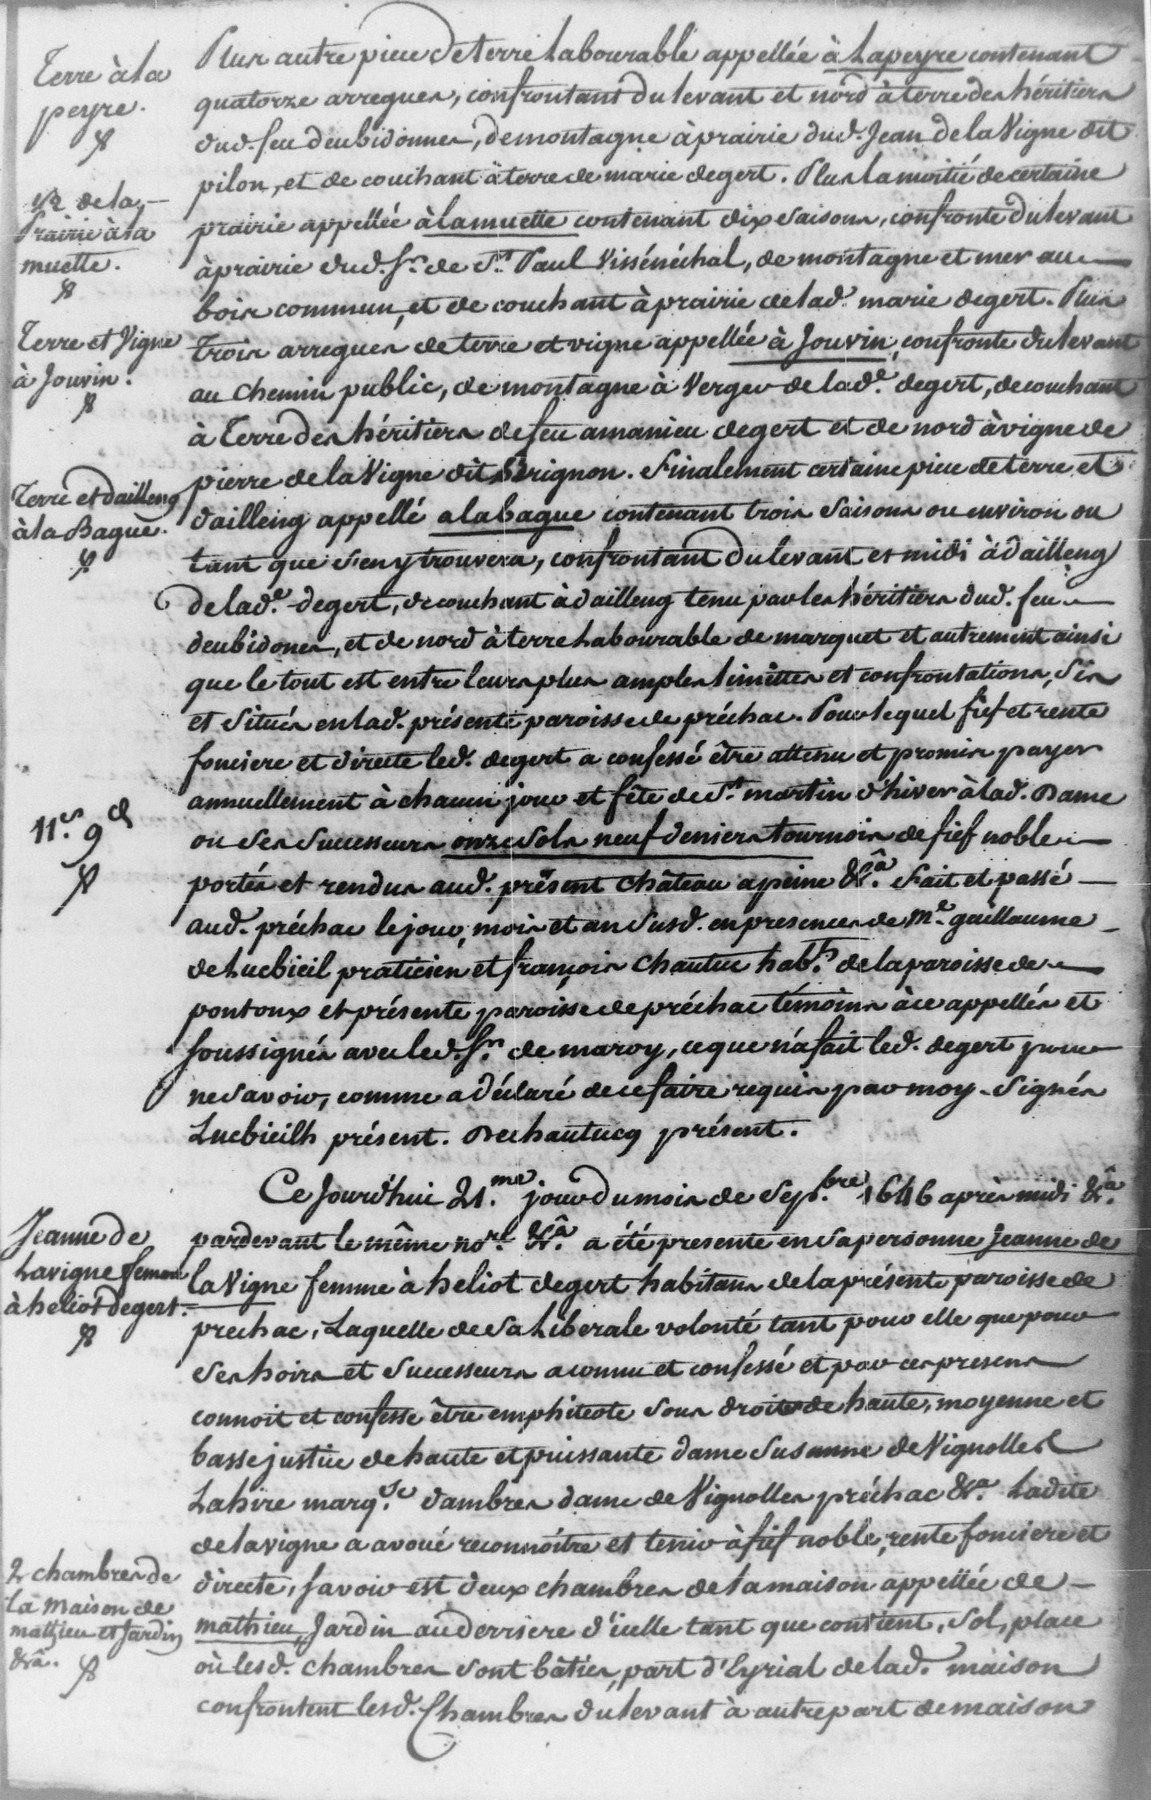 Terre à la
peyre.
1/2 de la
Prairie à la
muette.
Terre et Vigne
à Jouvin.
Terre et dailleng
à la Bague.
11s 9d
Jeanne de
Lavigne femme
à heliot degert.
2 chambres de
la maison de
mathieu et Jardin
&râ.
Plus autre piece de terre Labourable appellée à Lapeyre contenant
quatorze arregues, confrontant du levant et nord à terre des héritiers
dud. feu deubidonnes, de montagne à prairie dud. Jean de la Vigne dit
pilon, et de couchant à terre de marie degert. Plus la moitié de certaine
prairie appellée à lamuette contenant dix saisons, confronte du levant
à prairie dud. Sr. de St. Paul Vissénéchal, de montagne et mer au
bois commun, et de couchant à prairie de lad. marie degert. Plus
Trois arregues de terre et vigne appellée à Jouvin, confronte du levant
au Chemin public, de montagne à Verger de lade. degert, de couchant
à Terre des héritiers de feu amanieu degert et de nord à vigne de
pierre de la Vigne dit Brignon. Finalement certaine piece de terre et
dailleng appellé alabague contenant trois saisons ou environ ou
tant que s'en y trouvera, confrontant du levant et midi à dailleng
de lade. degert, de couchant à dailleng tenu par les héritiers dud. feu
deubidones, et de nord à terre Labourable de marquet et autrement ainsi
que le tout est entre leurs plus amples limittes et confrontations, Sis
et situés en lad. présente paroisse de préchac. Pour lequel fief et rente
fonciere et directe led. degert a confessé être attenu et promis payer
annuellement à chacun jour et fête de St. martin d'hiver à lad. Dame
ou ses successeurs onze sols neuf deniers tournois de fief noble
portés et rendus aud. présent Château a peine &râ. Fait et passé
aud. préchac le jour, mois et an susd. en presences de Me. guillaume
de Lucbieil praticien et françois Chautuc habts. de la paroisse de
pontonx et présente paroisse de préchac témoins à ce appellés et
soussignés avec led. Sr. de maroy, ce que n'a fait led. degert pour
ne savoir, comme a déclaré de ce faire requis par moy. Signés
Lucbieilh présent. Dechautucq présent.
Ce Jourd'hui 21.me jour du mois de Sepbre 1646 après midi &râ.
pardevant le même nore. &râ. a été presente en sa personne Jeanne de
la Vigne femme à heliot degert habitans de la présente paroisse de
prechac, Laquelle de sa Liberale volonté tant pour elle que pour
ses hoirs et successeurs a connu et confessé et par ces presens
connoit et confesse être emphiteote sous droits de haute, moyenne et
basse justice de haute et puissante dame Susanne de Vignolles
Lahire marqse. dambres dame de Vignolles préchac &ra. Ladite
de lavigne a avoué reconnoitre et tenir à fief noble, rente fonciere et
directe, savoir est deux chambres de la maison appellée de
mathieu, Jardin au derriere d'icelle tant que contient, Sol, place
où lesd. chambres sont bâties, part d'Eyrial de lad. maison
confrontent lesd. Chambres du levant à autre part de maison